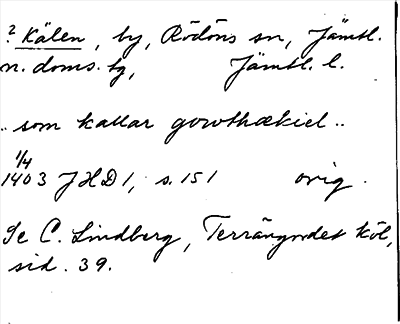 ? Kälen, by, Rödöns sn, Jämtl.
n. doms. by, Jämtl. l.
.. som kallar gowthækiel ..
1/4
1403 JHD 1, s. 151 orig.
Se C. Lindberg, Terrängordet köl,
sid. 39.